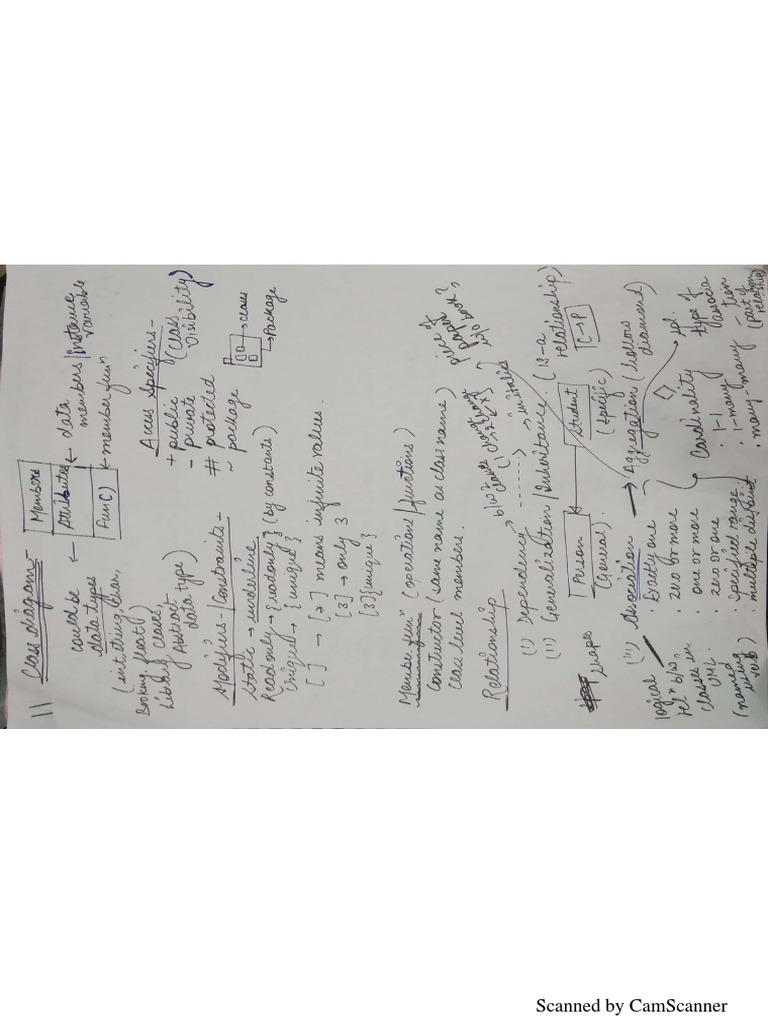 11
Class diagram
Members
Attributes
Func()
← data
members/instance
variable
← member funⁿ
could be ←
data types
(int, string, char,
Booking, float)
Library, classes,
Abstract
data type)
Access Specifiers -
+ public (class
- private visibility)
# protected
~ package
→ class
→ Package
Modifiers/Constraints -
Static → underline
Readonly → {readonly} (by constants)
Unique → {unique}
[ ] → [*] means infinite values.
[3] → only 3
[3]{unique}
Member funⁿ (operations/functions)
Constructor (same name as class name)
Class level members.
Relationship
(i) Dependency
b/w 2 classes
piece of
paper
(ii) Generalization/Inheritance (is-a
relationship)
Person
(General).
Student
(specific)
C→P
shapes
(iii) Association → Aggregation (hollow
diamond)
logical
relⁿ b/w
classes in
UML.
(named
using
verb)
· Exactly one
· zero or more
· one or more
· zero or one
· specified range
· multiple disjoint
Cardinality
· 1-1
· 1-many
· many-many
spl.
type of
associa
-tion
(part of
relationship)